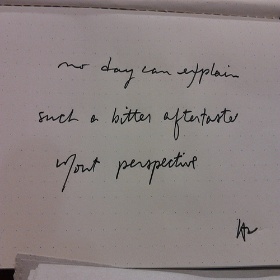 no day can explain
such a bitter aftertaste
w/out perspective